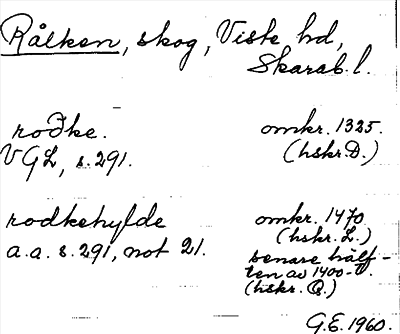 Rålken, skog, Viste hd,
Skarab. l.
roðke. omkr. 1325.
VGL, s. 291. (hskr. D.)
rodkehylde omkr. 1470
(hskr. L.)
a.a. s. 291, not 21. senare hälf-
ten av 1400-t.
(hskr. Q.)
G.E. 1960.